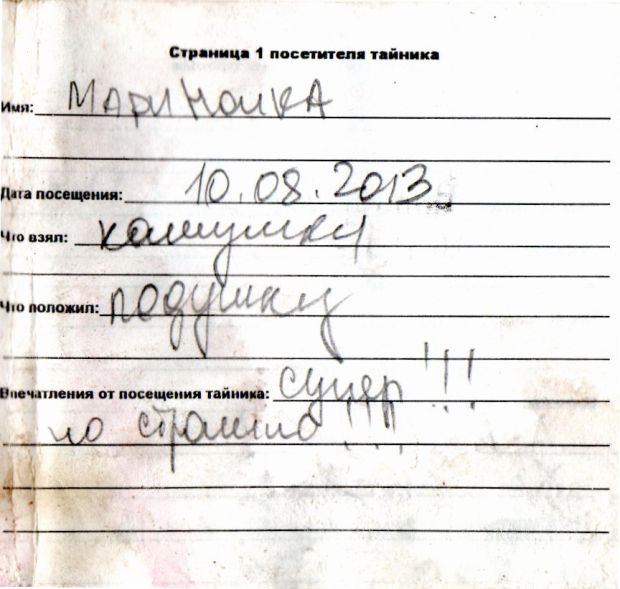 Страница 1 посетителя тайника
Имя: Мариношка
Дата посещения: 10.08.2013
Что взял:
Что положил: подушку
Впечатления от посещения тайника: супер !!!
но страшно !!!